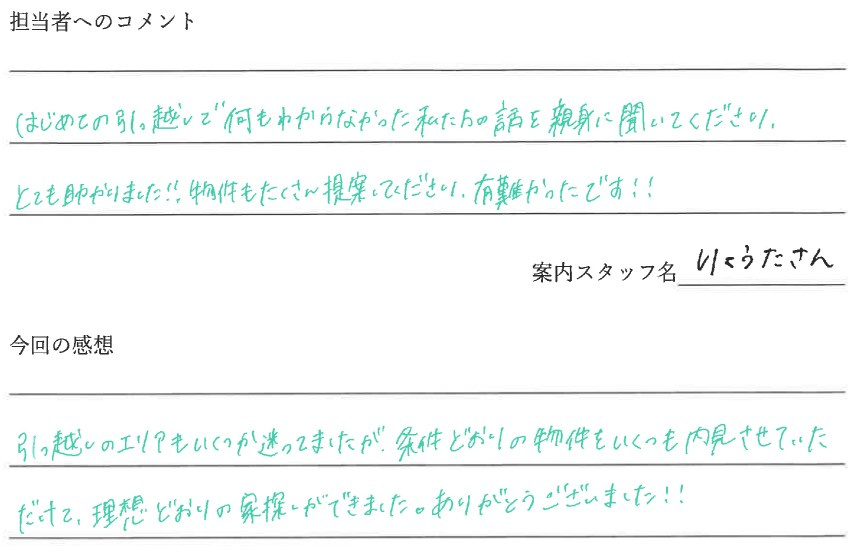 担当者へのコメント
はじめての引っ越しで何もわからなかった私たちの話を親身に聞いてくださり、
とても助かりました!!物件もたくさん提案してくださり、有難かったです!!
案内スタッフ名 りょうたさん
今回の感想
引っ越しのエリアもいくつか迷ってましたが、条件どおりの物件をいくつも内見させていた
だけて、理想どおりの家探しができました。ありがとうございました!!